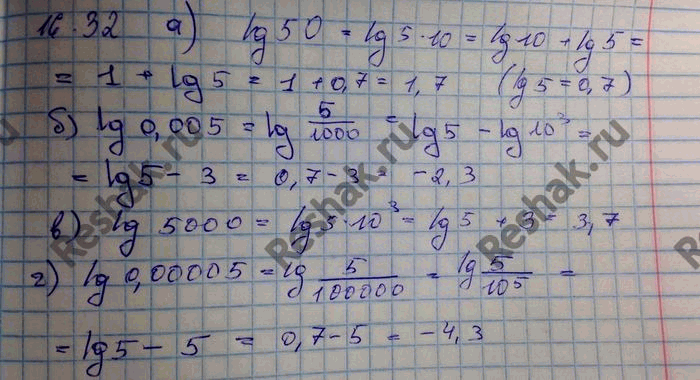 16.32 а) lg 50 = lg 5·10 = lg 10 + lg 5 =
= 1 + lg 5 = 1 + 0,7 = 1,7 (lg 5 = 0,7)
б) lg 0,005 = lg 5/1000 = lg 5 - lg 10³ =
= lg 5 - 3 = 0,7 - 3 = -2,3
в) lg 5000 = lg 5·10³ = lg 5 + 3 = 3,7
г) lg 0,00005 = lg 5/100000 = lg 5/10⁵ =
= lg 5 - 5 = 0,7 - 5 = -4,3
Reshak.ru
Reshak.ru
Reshak.ru